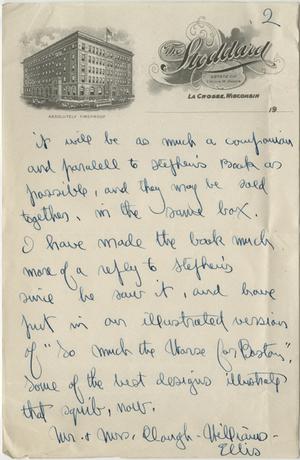 2
The Stoddard
ESTATE OF
LA CROSSE, WISCONSIN
ABSOLUTELY FIREPROOF
19
it will be as much a companion
and paralell to Stephen's Book as
possible, and they may be sold
together, in the same box.
I have made the book much
more of a reply to Stephen's
since he saw it, and have
put in an illustrated version
of "So much the Worse for Boston",
some of the best designs illustrate
that squib, now.
Mr. + Mrs. Clough-Williams-
Ellis